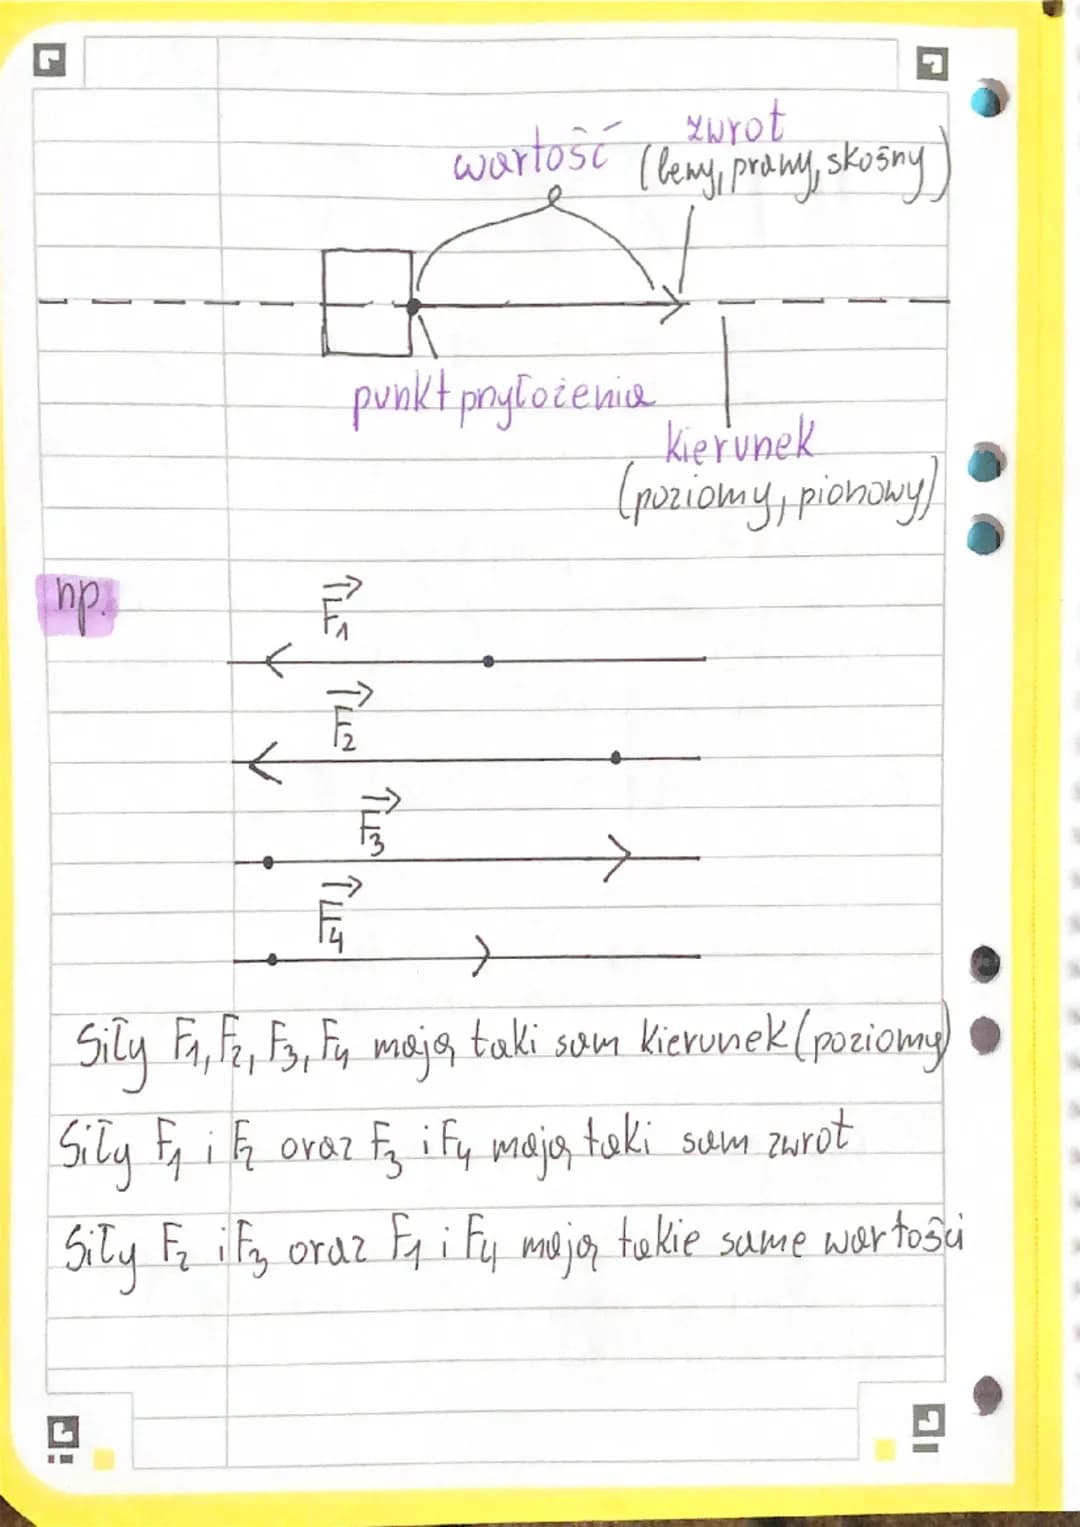 zwrot
wartość (lewy, prawy, skośny)
punkt przyłożenia
kierunek
(poziomy, pionowy)
np.
F₁
F₂
F₃
F₄
Siły F₁, F₂, F₃, F₄ mają taki sam kierunek (poziomy)
Siły F₁ i F₂ oraz F₃ i F₄ mają taki sam zwrot
Siły F₂ i F₃ oraz F₁ i F₄ mają takie same wartości